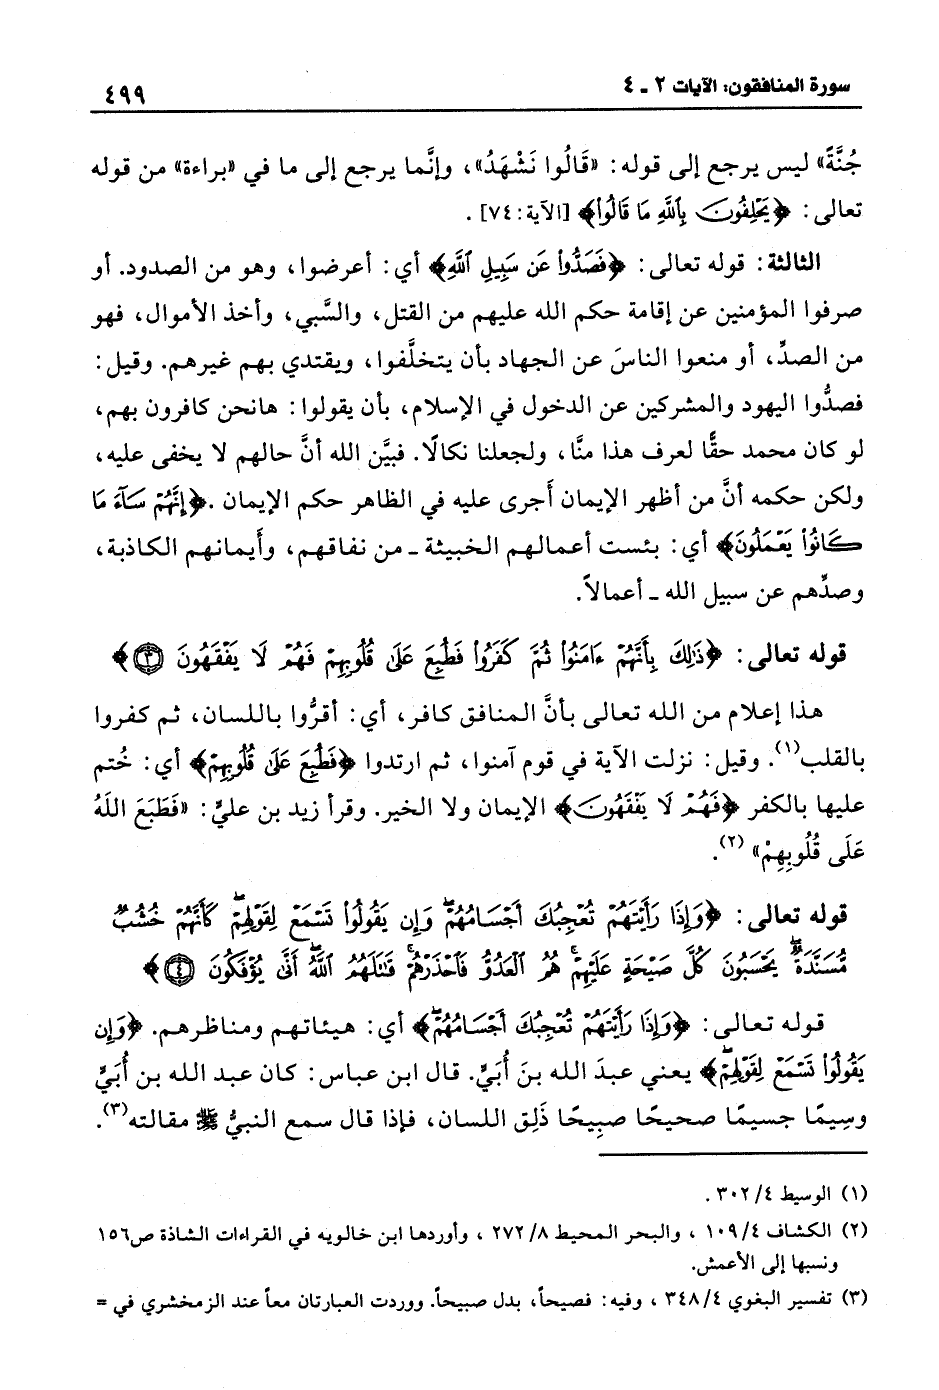 سورة المنافقون: الآيات ٢ - ٤
٤٩٩
جُنَّةً» ليس يرجع إلى قوله: «قَالُوا نَشْهَدُ»، وإنَّما يرجع إلى ما في «براءة» من قوله
تعالى: ﴿يَحْلِفُونَ بِٱللَّهِ مَا قَالُواْ﴾ [الآية: ٧٤].
الثالثة: قوله تعالى: ﴿فَصَدُّواْ عَن سَبِيلِ ٱللَّهِ﴾ أي: أعرضوا، وهو من الصدود. أو
صرفوا المؤمنين عن إقامة حكم الله عليهم من القتل، والسَّبي، وأخذ الأموال، فهو
من الصدِّ، أو منعوا الناسَ عن الجهاد بأن يتخلَّفوا، ويقتدي بهم غيرهم. وقيل:
فصدُّوا اليهود والمشركين عن الدخول في الإسلام، بأن يقولوا: هانحن كافرون بهم،
لو كان محمد حقًّا لعرف هذا منَّا، ولجعلنا نكالًا. فبيَّن الله أنَّ حالهم لا يخفى عليه،
ولكن حكمه أنَّ من أظهر الإيمان أَجرى عليه في الظاهر حكم الإيمان .﴿إِنَّهُمْ سَآءَ مَا
كَانُواْ يَعْمَلُونَ﴾ أي: بئست أعمالهم الخبيثة ـ من نفاقهم، وأَيمانهم الكاذبة،
وصدِّهم عن سبيل الله ـ أعمالاً.
قوله تعالى: ﴿ذَٰلِكَ بِأَنَّهُمْ ءَامَنُواْ ثُمَّ كَفَرُواْ فَطُبِعَ عَلَىٰ قُلُوبِهِمْ فَهُمْ لَا يَفْقَهُونَ ٣﴾
هذا إعلام من الله تعالى بأنَّ المنافق كافر، أي: أقرُّوا باللسان، ثم كفروا
بالقلب(١). وقيل: نزلت الآية في قوم آمنوا، ثم ارتدوا ﴿فَطُبِعَ عَلَىٰ قُلُوبِهِمْ﴾ أي: خُتم
عليها بالكفر ﴿فَهُمْ لَا يَفْقَهُونَ﴾ الإيمان ولا الخير. وقرأ زيد بن عليٍّ: «فَطَبَعَ اللَهُ
عَلَى قُلُوبِهِمْ» (٢).
قوله تعالى: ﴿وَإِذَا رَأَيْتَهُمْ تُعْجِبُكَ أَجْسَامُهُمْ ۖ وَإِن يَقُولُواْ تَسْمَعْ لِقَوْلِهِمْ ۖ كَأَنَّهُمْ خُشُبٌ
مُّسَنَّدَةٌ ۖ يَحْسَبُونَ كُلَّ صَيْحَةٍ عَلَيْهِمْ ۚ هُمُ ٱلْعَدُوُّ فَٱحْذَرْهُمْ ۚ قَٰتَلَهُمُ ٱللَّهُ ۖ أَنَّىٰ يُؤْفَكُونَ ٤﴾
قوله تعالى: ﴿وَإِذَا رَأَيْتَهُمْ تُعْجِبُكَ أَجْسَامُهُمْ ۖ﴾ أي: هيئاتهم ومناظرهم. ﴿وَإِن
يَقُولُواْ تَسْمَعْ لِقَوْلِهِمْ ۖ﴾ يعني عبدَ الله بنَ أُبَيٍّ. قال ابن عباس: كان عبد الله بن أُبَيٍّ
وسِيمًا جسيمًا صحيحًا صبِيحًا ذَلِق اللسان، فإذا قال سمع النبيُّ ﷺ مقالته(٣).
(١) الوسيط ٤/ ٣٠٢ .
(٢) الكشاف ٤/ ١٠٩ ، والبحر المحيط ٨/ ٢٧٢ ، وأوردها ابن خالويه في القراءات الشاذة ص١٥٦
ونسبها إلى الأعمش.
(٣) تفسير البغوي ٤/ ٣٤٨ ، وفيه: فصيحاً، بدل صبيحاً. ووردت العبارتان معاً عند الزمخشري في =